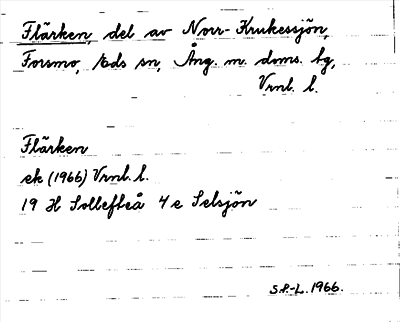 Flärken, del av Norr-Krukessjön,
Forsmo, Eds sn, Ång. m. doms. lg,
Vrnl. l.
Flärken
ek (1966) Vrnl. l.
19 H Sollefteå 4 e Selsjön
S.P.-L. 1966.